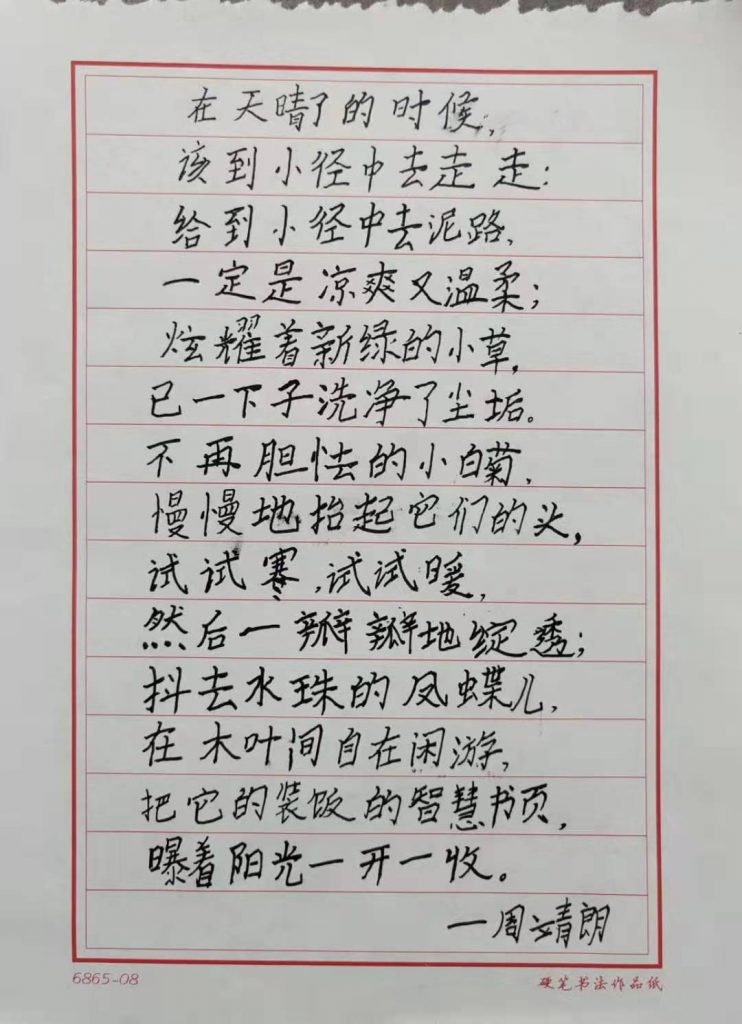 在天晴了的时候，
该到小径中去走走：
给到小径中去泥路，
一定是凉爽又温柔；
炫耀着新绿的小草，
已一下子洗净了尘垢。
不再胆怯的小白菊，
慢慢地抬起它们的头，
试试寒，试试暖，
然后一瓣瓣地绽透；
抖去水珠的凤蝶儿，
在木叶间自在闲游，
把它的装饭的智慧书页，
曝着阳光一开一收。
一周靖朗
6865-08
硬笔书法作品纸